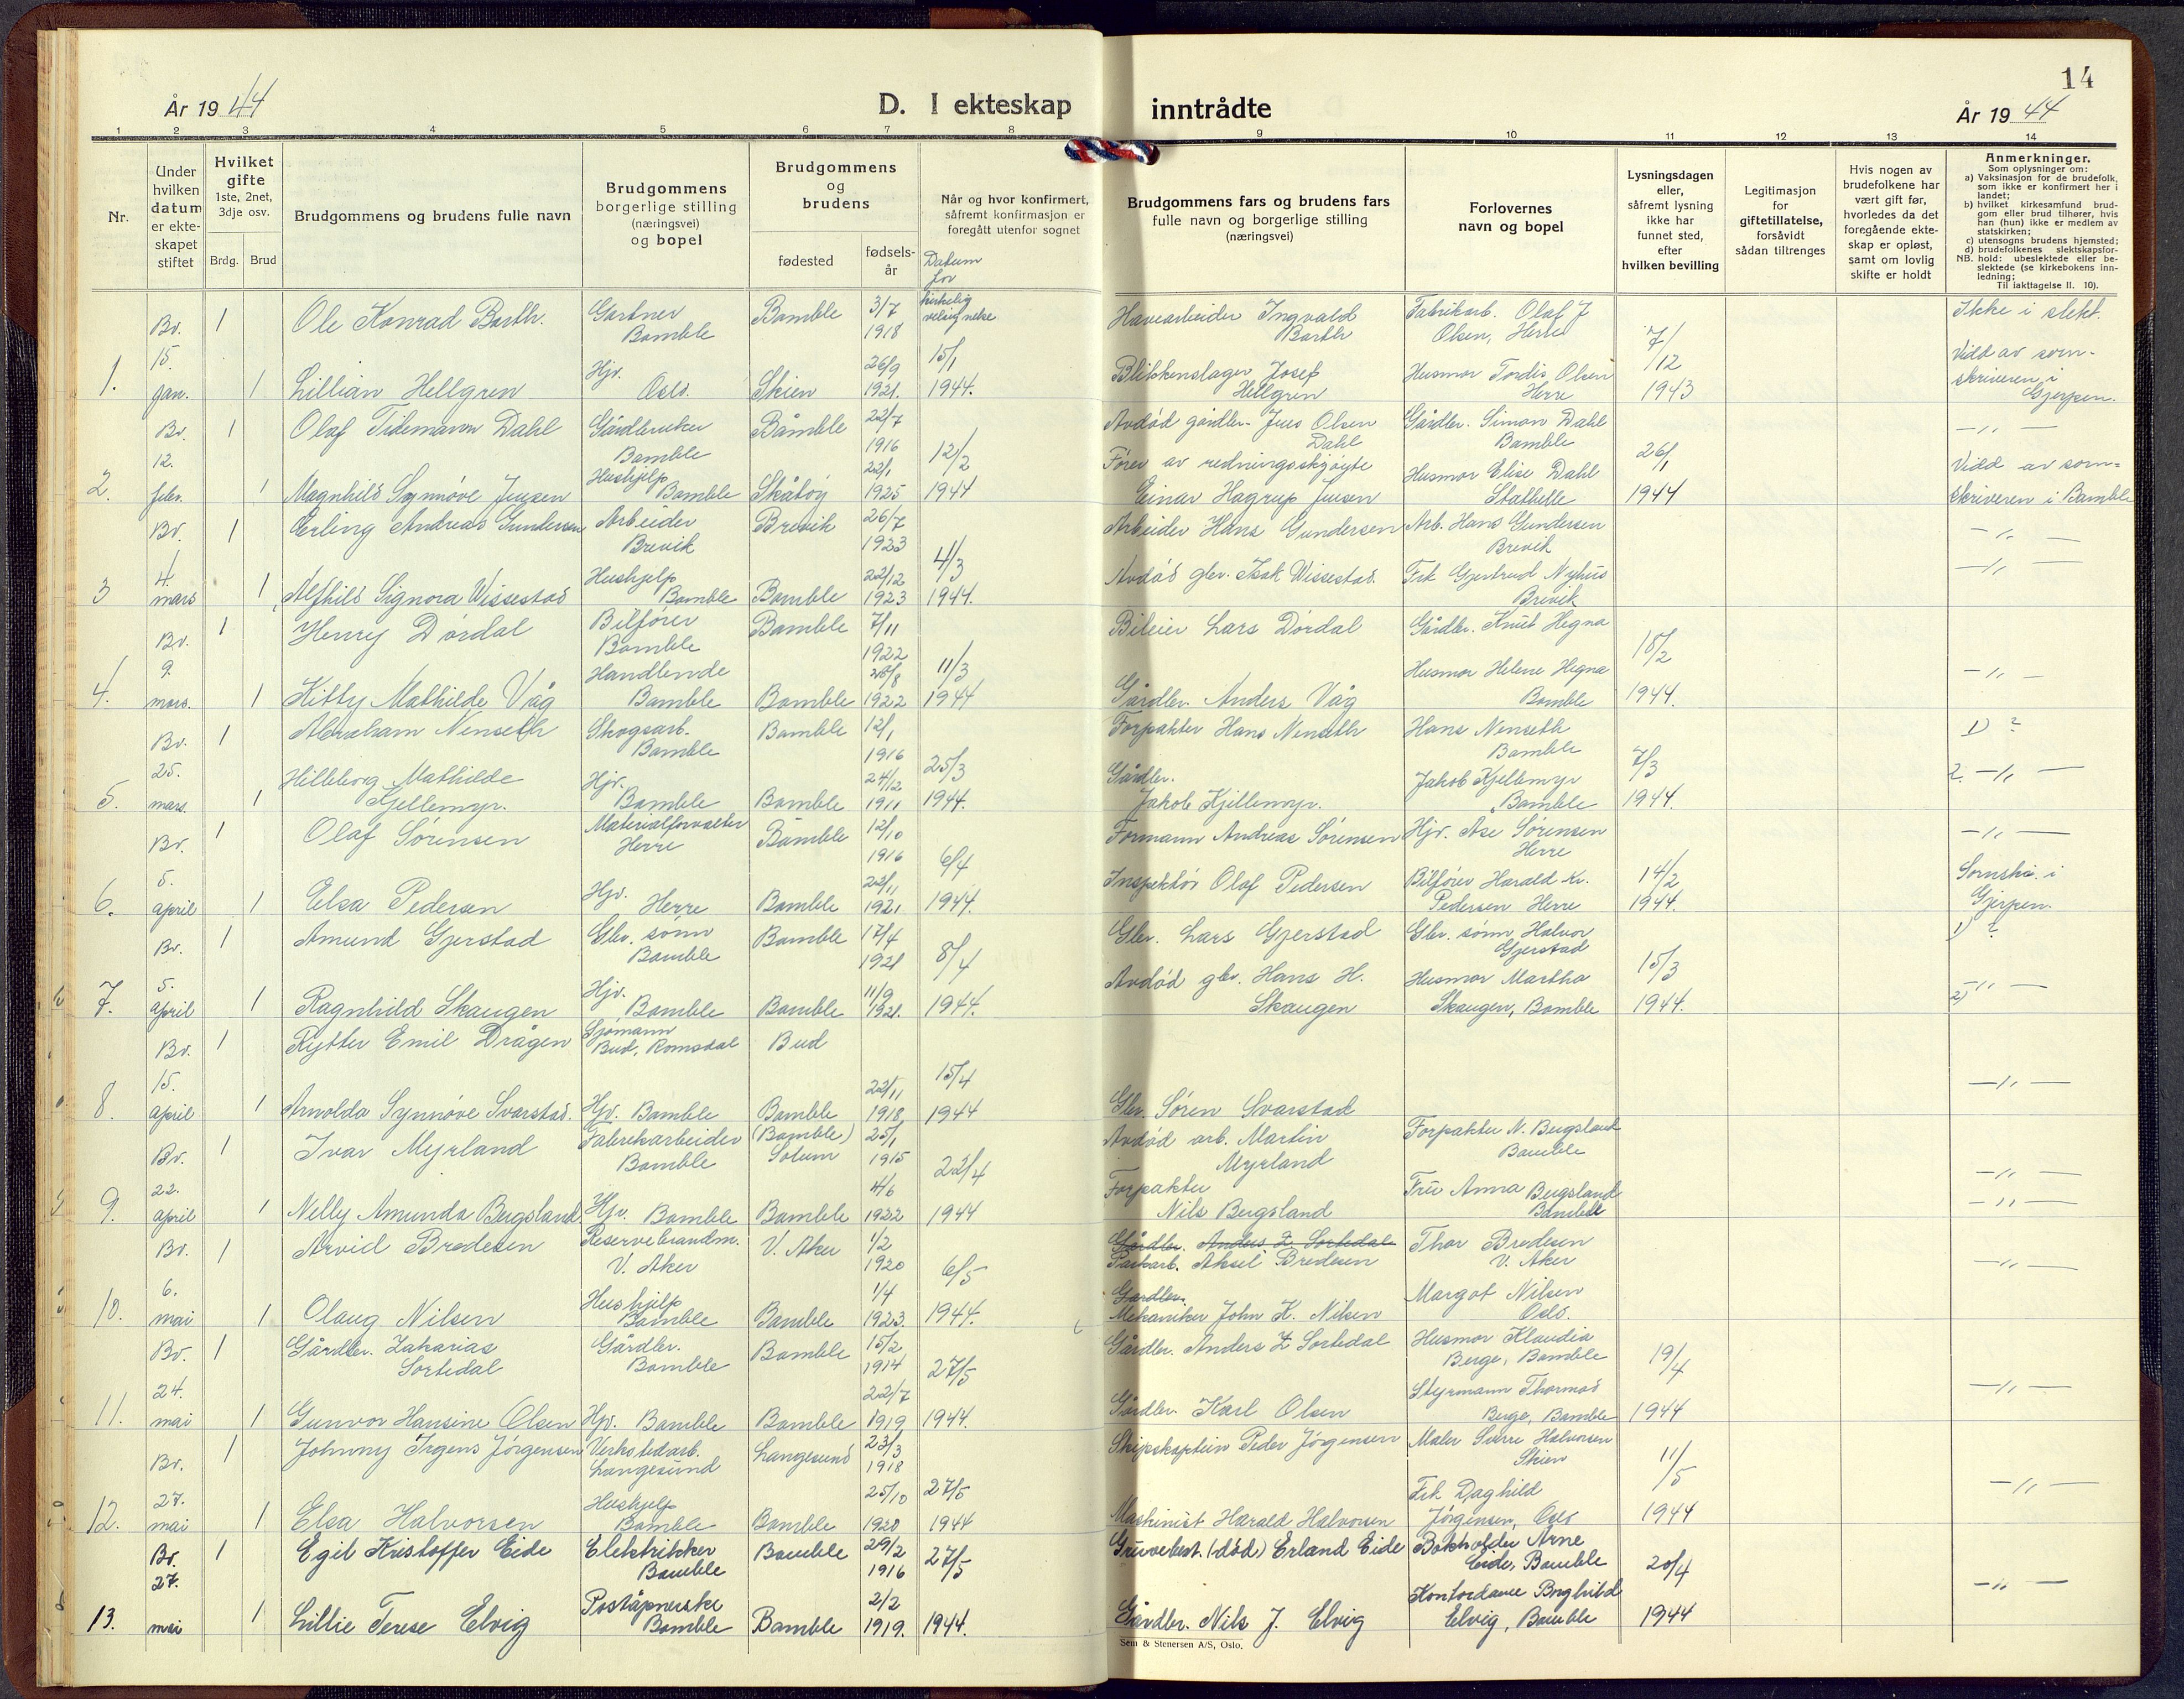 14
År 1944
D. I ekteskap inntrådte
År 1944
1 2 3 4 5 6 7 8 9 10 11 12 13 14
Nr.
Under hvilken datum er ekteskapet stiftet
Hvilket gifte 1ste, 2net, 3dje osv.
Brdg. Brud
Brudgommens og brudens fulle navn
Brudgommens borgerlige stilling (næringsvei) og bopel
Brudgommens og brudens
fødested
fødselsår
Når og hvor konfirmert, såfremt konfirmasjon er foregått utenfor sognet
Datum for kirkelig velsignelse
Brudgommens fars og brudens fars fulle navn og borgerlige stilling (næringsvei)
Forlovernes navn og bopel
Lysningsdagen eller, såfremt lysning ikke har funnet sted, efter hvilken bevilling
Legitimasjon for giftetillatelse, forsåvidt sådan tiltrenges
Hvis nogen av brudefolkene har vært gift før, hvorledes da det foregående ekteskap er opløst, samt om lovlig skifte er holdt
Anmerkninger.
Som oplysninger om:
a) Vaksinasjon for de brudefolk, som ikke er konfirmert her i landet;
b) hvilket kirkesamfund brudgom eller brud tilhører, hvis han (hun) ikke er medlem av statskirken;
c) utensogns brudens hjemsted;
d) brudefolkenes slektskapsforhold: ubeslektede eller beslektede (se kirkebokens innledning;
NB. Til iakttagelse II. 10).
Bv. 1 Ole Konrad Barth. Gartner Bamble Bamble 3/7 1918 Havearbeider Ingvald Barth Fabrikarb. Olaf J Olsen, Herre 7/12 1943 Ikke i slekt.
1. 15. jan. 1 Lillian Hellgren Hjv. Oslo. Skien 26/9 1921. 15/1 1944. Blikkenslager Josef Hellgren Husmor Tordis Olsen Herre Vidd av sorenskriveren i Gjerpen.
Bv. 1 Olaf Tidemann Dahl Gårdbruker Bamble Bamble 22/7 1916 Avdød gårdbr. Jens Olsen Dahl Gårdbr. Simon Dahl Bamble 26/1 1944 —"—
2. 12. febr. 1 Magnhild Synnøve Jensen Hushjelp Bamble Skåtøy 22/1 1925 12/2 1944 Fører av redningsskjøyte Einar Hagrup Jensen Husmor Elise Dahl Stathelle Vidd av sorenskriveren i Bamble
Bv. 1 Erling Andreas Gundersen Arbeider Brevik Brevik 26/7 1923 Arbeider Hans Gundersen Arb. Hans Gundersen Brevik —"—
3 4. mars 1 Alfhild Signora Wissestad Hushjelp Bamble Bamble 22/12 1923 4/3 1944. Avdød gbr. Isak Wissestad. Frk Gjertrud Nyhus Brevik —"—
Bv. 1 Henry Dørdal Bilfører Bamble Bamble 7/11 1922 Bileier Lars Dørdal Gårdbr. Knut Hegna 18/2 1944.
4. 9. mars. 1 Kitty Mathilde Våg Handlende Bamble Bamble 28/8 1922 11/3 1944 Gårdbr. Anders Våg Husmor Helene Hegna Bamble —"—
Bv. 1 Abraham Nenseth Skogsarb. Bamble Bamble 12/1 1916 Forpakter Hans Nenseth Hans Nenseth Bamble 7/3 1944. 1) ?
5. 25. mars. 1 Hilleborg Mathilde Kjellemyr. Hjv. Bamble Bamble 24/12 1911 25/3 1944. Gårdbr. Jakob Kjellemyr. Jakob Kjellemyr Bamble 2. —"—
Bv. 1 Olaf Sørensen Materialforvalter Herre Bamble 12/10 1916 Formann Andreas Sørensen Hjv. Åse Sørensen Herre 14/2 1944. —"—
6. 5. april 1 Elsa Pedersen Hjv. Herre Bamble 22/11 1921 6/4 1944. Inspektør Olaf Pedersen Bilfører Harald Kr. Pedersen Herre Sornskr. i Gjerpen.
Bv. 1 Amund Gjerstad Gbr. sønn Bamble Bamble 17/4 1921 Gbr. Lars Gjerstad Gbr. sønn, Halvor Gjerstad 15/3 1944. 1) ?
7. 5. april 1 Ragnhild Skaugen Hjv. Bamble Bamble 11/9 1921. 8/4 1944. Avdød gbr. Hans H. Skaugen Husmor Martha Skaugen, Bamble 2) —"—
Bv. 1 Rytter Emil Drågen Sjømann Bud, Romsdal Bud
8. 15. april 1 Arnolda Synnøve Svarstad. Hjv. Bamble Bamble 22/11 1918 15/4 1944 Gbr. Søren Svarstad —"—
Bv. 1 Ivar Myrland Fabrikarbeider Bamble (Bamble) Solum 25/1 1915 Avdød arb. Martin Myrland Forpakter N. Bugsland Bamble —"—
9. 22. april 1 Nelly Amunda Bugsland Hjv. Bamble Bamble 4/6 1922 22/4 1944 Forpakter Nils Bugsland Fru Anna Bugsland Bamble —"—
Bv. 1 Arvid Bredesen Reservebrandm. V. Aker V. Aker 1/2 1920 Gårdbr. Anders Z Sortedal Aksel Bredesen Thor Bredesen V. Aker —"—
10. 6. mai 1 Olaug Nilsen Hushjelp Bamble Bamble 1/4 1923. 6/5 1944. Gårdbr. Mekaniker John K. Nilsen Margot Nilsen Oslo.
Bv. 1 Gårdbr. Zakarias Sortedal Gårdbr. Bamble Bamble 15/2 1914 Gårdbr. Anders Z Sortedal Husmor Klaudia Berge, Bamble 19/4 1944
11. 24. mai 1 Gunvor Hansine Olsen Hjv. Bamble Bamble 22/7 1919 27/5 1944. Gårdbr. Karl Olsen Styrmann Thormod Berge, Bamble —"—
Bv. 1 Johnny Irgens Jørgensen Verkstedarb. Langesund Langesund 23/3 1918 Skipskaptein Peder Jørgensen Maler Sverre Halvorsen Skien 11/5 1944
12. 27. mai 1 Elsa Halvorsen Hushjelp Bamble Bamble 25/10 1920 27/5 1944 Maskinist Harald Halvorsen Frk Daghild Jørgensen, Oslo —"—
Bv. 1 Egil Kristoffer Eide Elektrikker Bamble Bamble 29/2 1916 Gruvebest. (død) Erland Eide Bokholder Arne Eide, Bamble 20/4 1944
13. 27. mai 1 Lillie Terese Elvig Poståpnerske Bamble Bamble 2/2 1919. 27/5 1944. Gårdbr. Nils J. Elvig Kontordame Borghild Elvig, Bamble —"—
Sem & Stenersen A/S, Oslo.